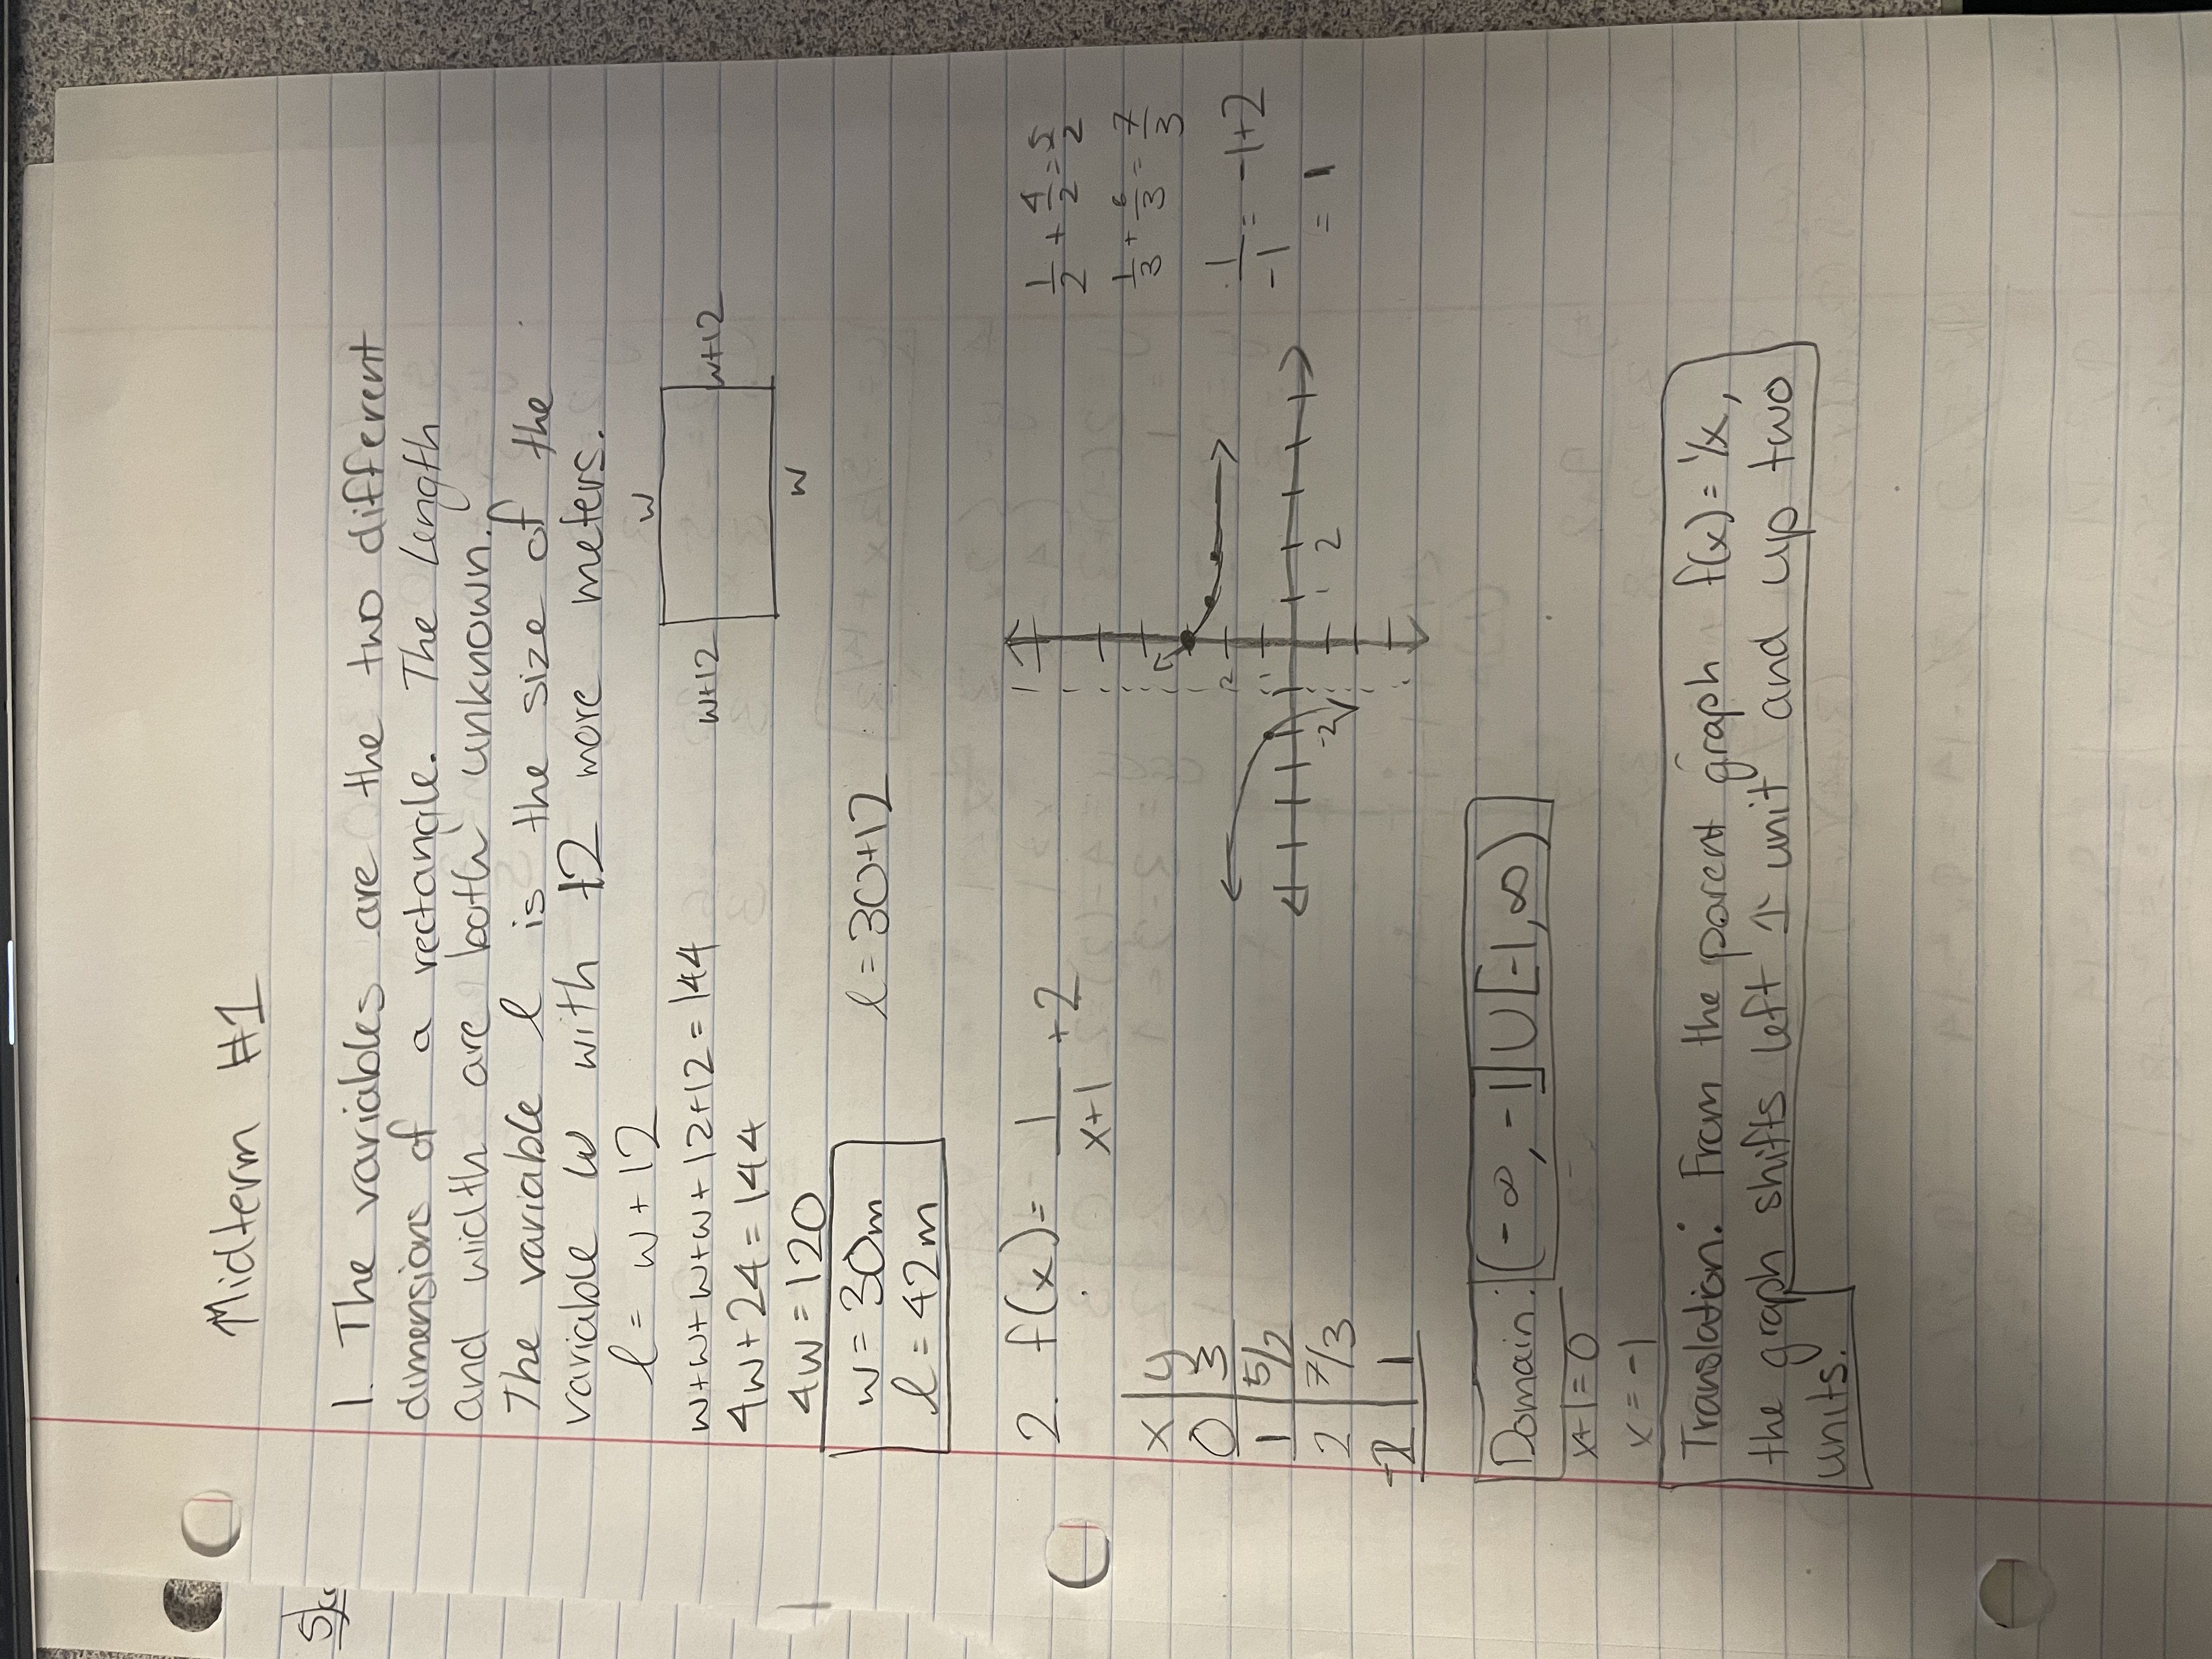 Midterm #1
1. The variables are the two different
dimensions of a rectangle. The length
and width are both unknown.
The variable l is the size of the
variable w with 12 more meters.
l = w + 12
w+w+w+w+12+12 = 144
4w+24 = 144
4w = 120
w = 30m
l = 42m
l = 30+12
w
w+12
w+12
w
2. f(x) = 1/(x+1) + 2
x | y
0 | 3
1 | 5/2
2 | 7/3
-2 | 1
2
1
-2
1
2
1/2 + 4/2 = 5/2
1/3 + 6/3 = 7/3
1/-1 = -1+2
= 1
Domain: (-∞, -1] ∪ [-1, ∞)
x+1 = 0
x = -1
Translation: From the parent graph f(x) = 1/x,
the graph shifts left 1 unit and up two
units.